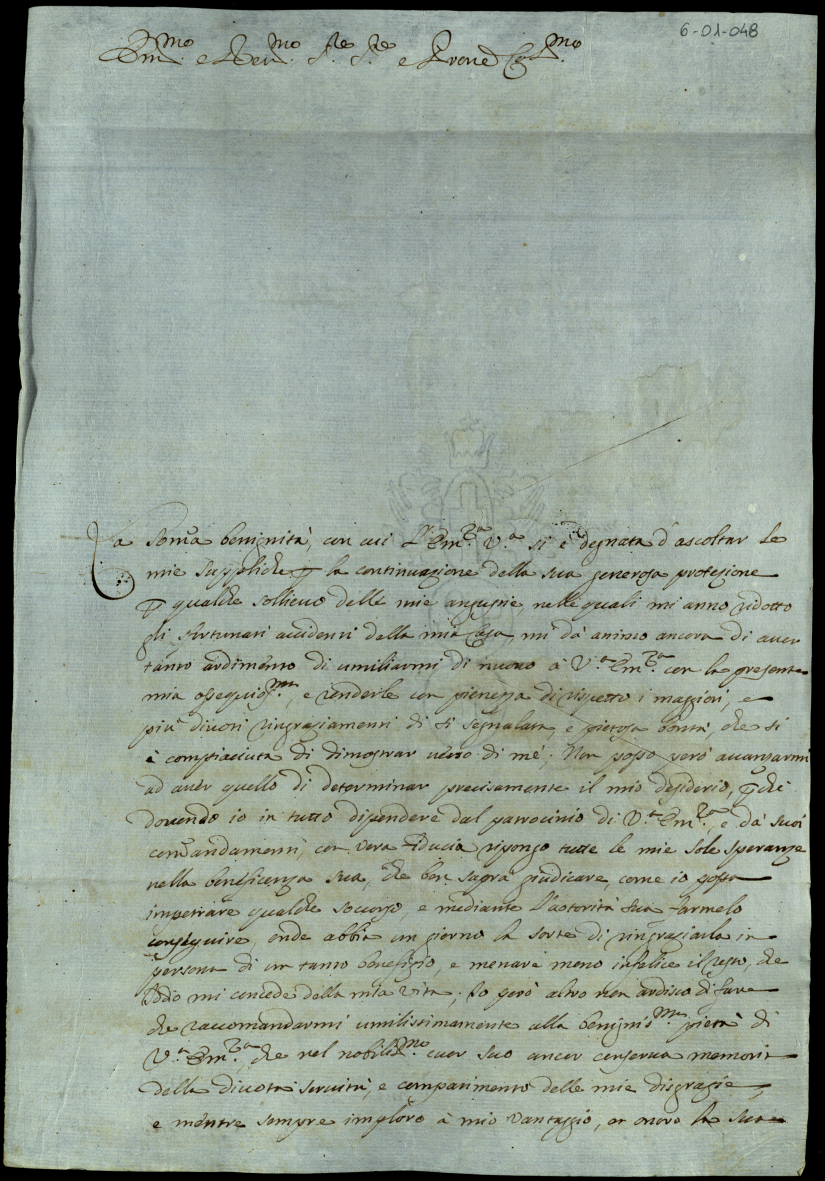 6-01-048
Em.mo e Rev.mo S.re S.re e P.rone Col.mo
La Somã benignità, con cui l'Em.za V.a si è degnata d'ascoltar le
mie suppliche p la continuazione della sua generosa protezione
p qualche sollievo delle mie angustie, nelle quali mi anno ridotto
gli sfortunati accidenti della mia Casa, mi dà animo ancora di aver
tanto ardimento di umiliarmi di nuovo à V.a Em.za con la presente
mia ossequios.ma, e renderle con pienezza di rispetto i maggiori, e
più divoti ringraziamenti di sì segnalata, e pietosa bontà, che si
è compiaciuta di dimostrar verso di me; Non posso però avanzarmi
ad aver quello di determinar precisamente il mio desiderio, pchè
dovendo io in tutto dipendere dal patrocinio di V.a Em.za, e da' suoi
comandamenti, con vera fiducia ripongo tutte le mie sole speranze
nella beneficenza sua, che ben saprà giudicare, come io possa
impetrare qualche soccorso, e mediante l'autorità sua farmelo
conseguire, onde abbia un giorno la sorte di ringraziarla in
persona di un tanto benefizio, e menare meno infelice il resto, che
Iddio mi concede della mia vita; Io però altro non ardisco di fare
che raccomandarmi umilissimamente alla benignis.ma pietà di
V.a Em.za, che nel nobiliss.mo cuor suo ancor conserva memoria
della divota servitù, e compatimento delle mie disgrazie,
e mentre sempre imploro à mio vantaggio, et onore la sua